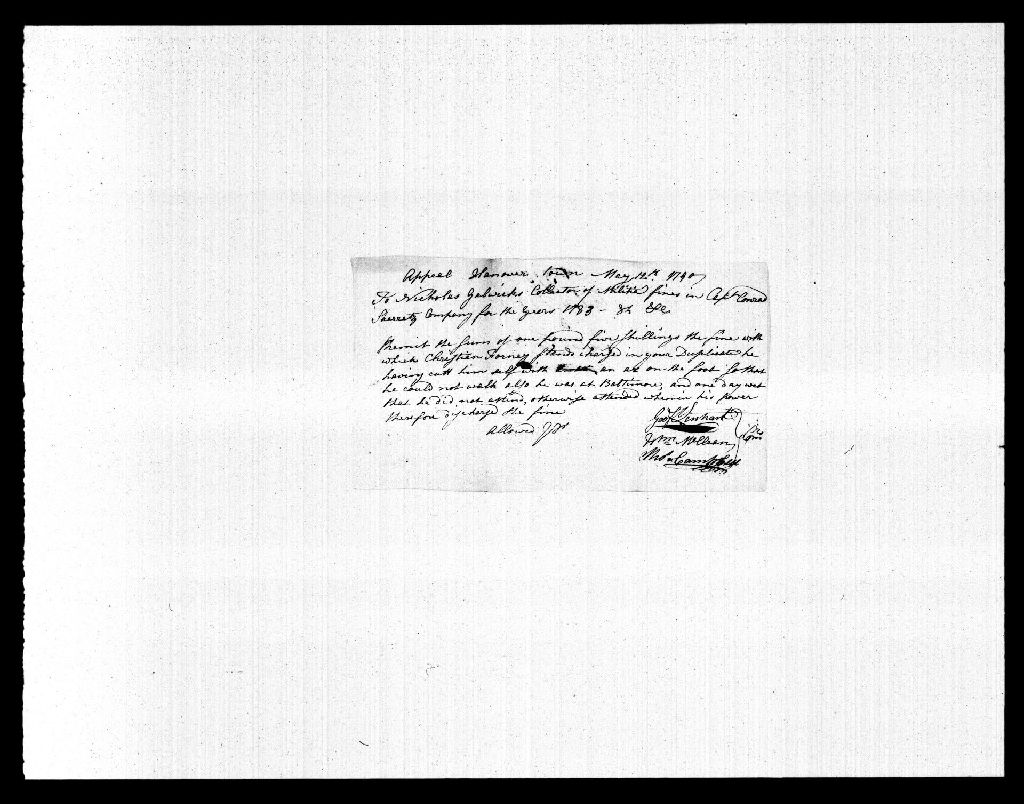 Appeal Hanover town May 12th 1790
To Nicholas Gelwicks Collector of Militia fines in Capt Conrad
Sherretz Company for the Years 1783 - 84 &c
Remit the sum of one pound five shillings the fine with
which Christian Forney stands charged in your Duplicate he
having cutt him self with an ax on the foot so that
he could not walk also he was at Baltimore, and one day wet
that he did not attend, otherwise attended when in his power
therefore discharge the fine
allowed
Lenhart
Wm McClean
Campbell